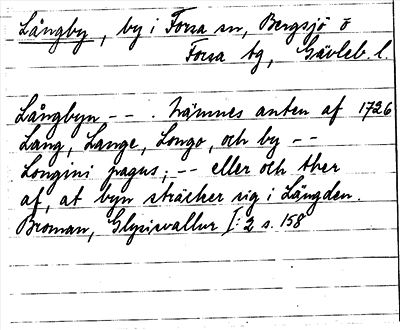 Långby, by i Forsa sn, Bergsjö o
Forsa tg, Gävleb. l.
Långbyn -- . nämnes anten af 1726
Lang, Lange, Longo, och by --
Longini pagus; -- eller och ther
af, at byn sträcker sig i Längden.
Broman, Glysisvallur I: 2 s. 158